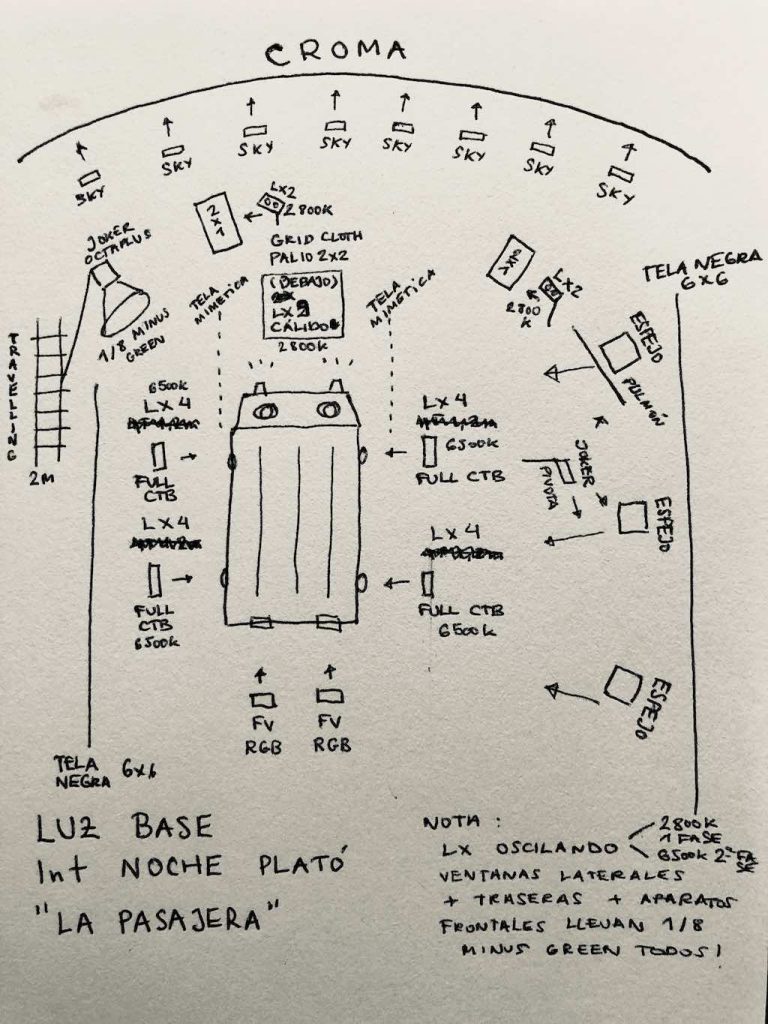 CROMA
SKY
SKY
SKY
SKY
SKY
SKY
SKY
SKY
LX2
2800K
2x1
GRID CLOTH
PALIO 2x2
(DEBAJO)
LX2
CÁLIDO
2800K
JOKER
OCTAPLUS
1/8 MINUS
GREEN
TRAVELLING
2M
TELA
MIMETICA
TELA
MIMETICA
2x1
LX2
2800
K
TELA NEGRA
6x6
ESPEJO
PULMÓN
JOKER
PIVOTA
ESPEJO
ESPEJO
6500K
LX4
FULL
CTB
LX4
FULL
CTB
6500K
LX4
6500K
FULL CTB
LX4
FULL CTB
6500K
FV
RGB
FV
RGB
TELA
NEGRA 6x6
LUZ BASE
Int NOCHE PLATÓ
"LA PASAJERA"
NOTA :
LX OSCILANDO
2800K
1 FASE
6500K 2ª FASE
VENTANAS LATERALES
+ TRASERAS + APARATOS
FRONTALES LLEVAN 1/8
MINUS GREEN TODOS!